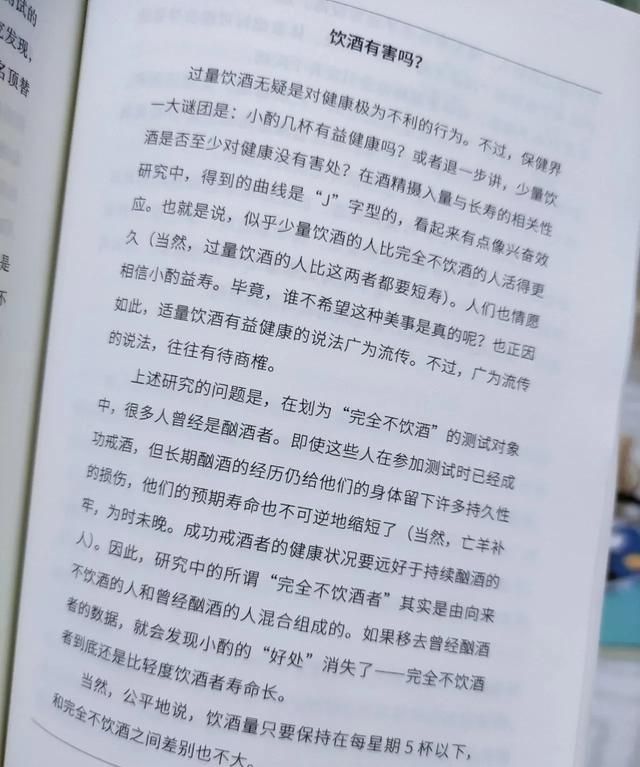 试的
发现，
名顶替
是
不
饮酒有害吗？
过量饮酒无疑是对健康极为不利的行为。不过，保健界
一大谜团是：小酌几杯有益健康吗？或者退一步讲，少量饮
酒是否至少对健康没有害处？在酒精摄入量与长寿的相关性
研究中，得到的曲线是“J”字型的，看起来有点像兴奋效
应。也就是说，似乎少量饮酒的人比完全不饮酒的人活得更
久（当然，过量饮酒的人比这两者都要短寿）。人们也情愿
相信小酌益寿。毕竟，谁不希望这种美事是真的呢？也正因
如此，适量饮酒有益健康的说法广为流传。不过，广为流传
的说法，往往有待商榷。
上述研究的问题是，在划为“完全不饮酒”的测试对象
中，很多人曾经是酗酒者。即使这些人在参加测试时已经成
功戒酒，但长期酗酒的经历仍给他们的身体留下许多持久性
的损伤，他们的预期寿命也不可逆地缩短了（当然，亡羊补
牢，为时未晚。成功戒酒者的健康状况要远好于持续酗酒的
人）。因此，研究中的所谓“完全不饮酒者”其实是由向来
不饮酒的人和曾经酗酒的人混合组成的。如果移去曾经酗酒
者的数据，就会发现小酌的“好处”消失了——完全不饮酒
者到底还是比轻度饮酒者寿命长。
当然，公平地说，饮酒量只要保持在每星期5杯以下，
和完全不饮酒之间差别也不大。